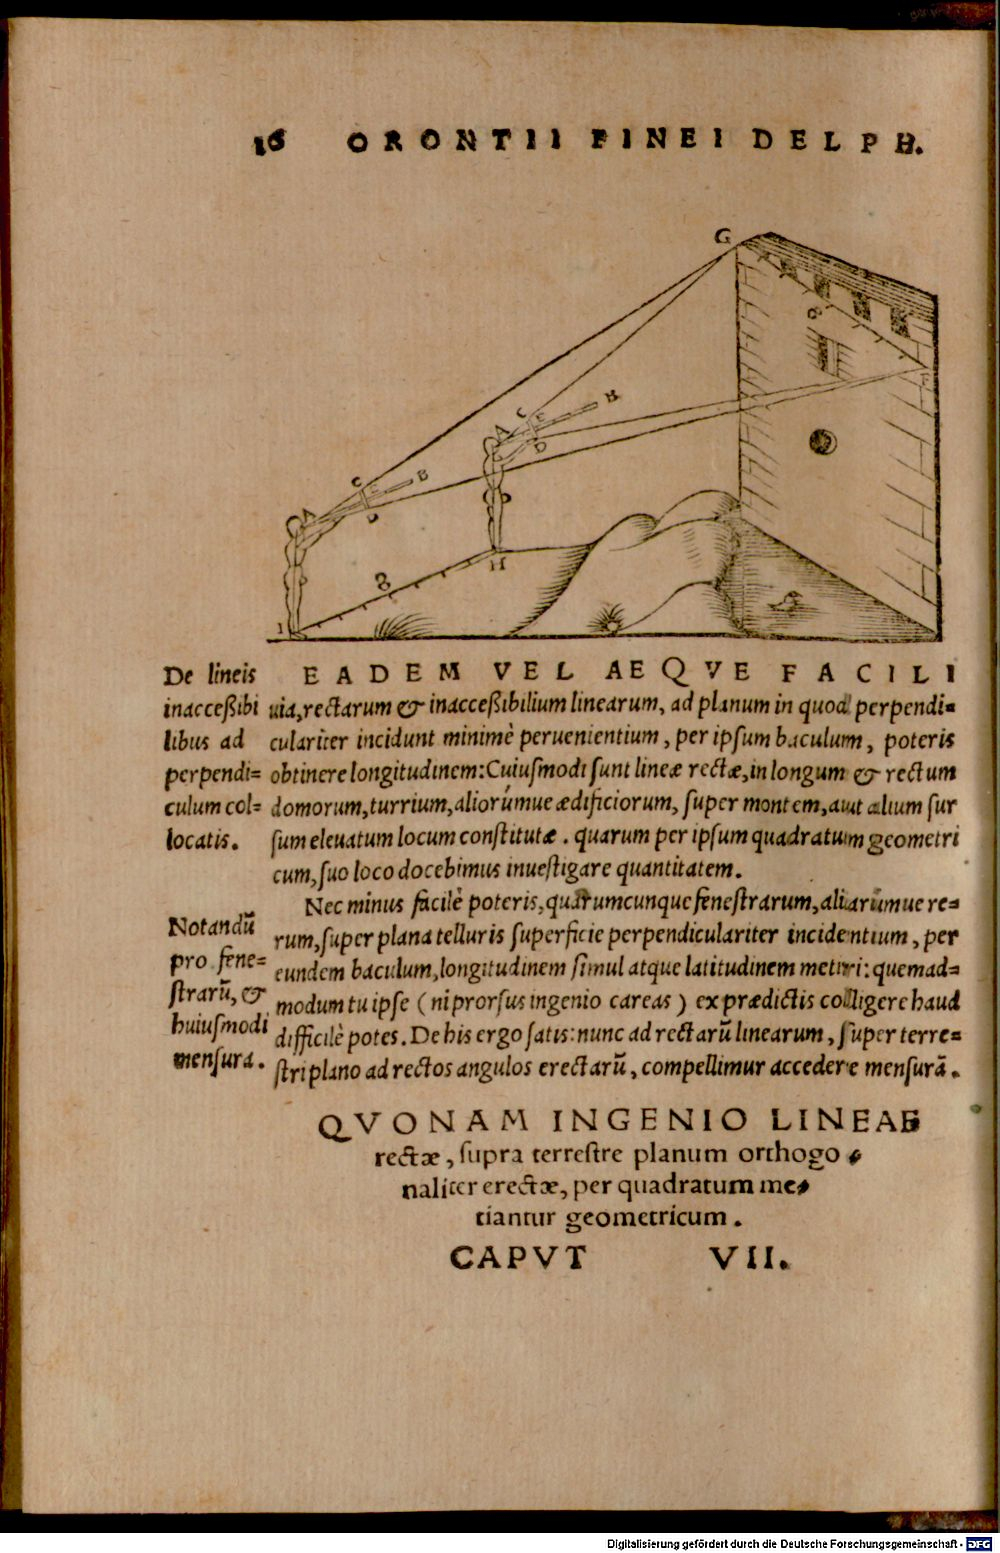 16 ORONTII FINEI DELPH.
G
8
C
H
A
E
D
F
C
B
E
A
D
8
H
I
De lineis
inacceßibi
libus ad
perpendi=
culum col=
locatis.
EADEM VEL AEQVE FACILI
uia, rectarum & inacceßibilium linearum, ad planum in quod perpendi=
culariter incidunt minimè peruenientium, per ipsum baculum, poteris
obtinere longitudinem: Cuiusmodi sunt lineæ rectæ, in longum & rectum
domorum, turrium, aliorúmue ædificiorum, super montem, aut alium sur
sum eleuatum locum constitutæ. quarum per ipsum quadratum geometri
cum, suo loco docebimus inuestigare quantitatem.
Notandũ
pro fene=
strarũ, &
huiusmodi
mensura.
Nec minus facilè poteris, quarumcunque fenestrarum, aliarúmue re=
rum, super plana telluris superficie perpendiculariter incidentium, per
eundem baculum, longitudinem simul atque latitudinem metiri: quemad=
modum tu ipse (ni prorsus ingenio careas) ex prædictis colligere haud
difficilè potes. De his ergo satis: nunc ad rectarũ linearum, super terre=
stri plano ad rectos angulos erectarũ, compellimur accedere mensurã.
QVONAM INGENIO LINEAE
rectæ, supra terrestre planum orthogo
naliter erectæ, per quadratum me
tiantur geometricum.
CAPVT VII.
Digitalisierung gefördert durch die Deutsche Forschungsgemeinschaft - DFG